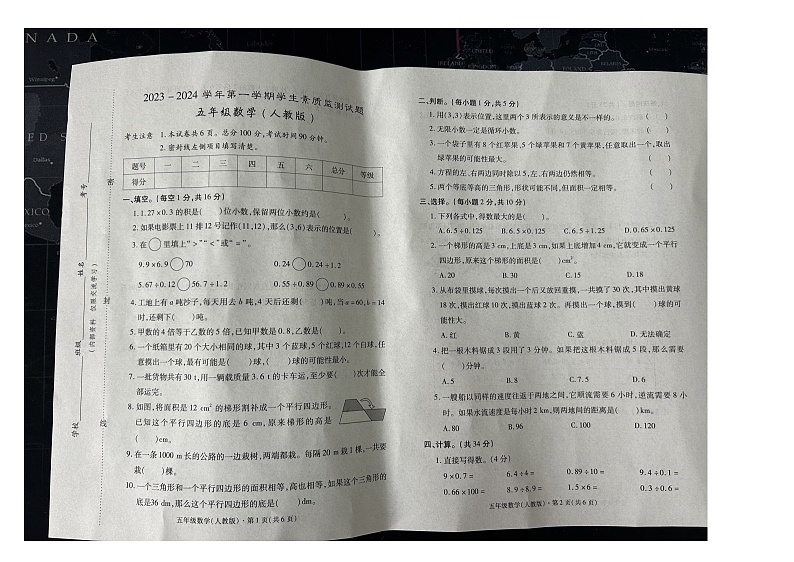 NADA
2023－2024 学年第一学期学生素质监测试题
五年级数学（人教版）
考生注意 1. 本试卷共 6 页。总分 100 分,考试时间 90 分钟。
2. 密封线左侧项目填写清楚。
题号 一 二 三 四 五 六 总分 等级
得分
学校 班级 姓名 考号
(内部资料 仅限交流学习)
密 封 线
一、填空。(每空 1 分,共 16 分)
1. 1.27×0.3 的积是( )位小数,保留两位小数约是( )。
2. 如果电影票上 11 排 12 号记作(11,12),那么(3,6)表示的位置是( )。
3. 在○里填上“>”“<”或“=”。
9.9×6.9○70 0.24○0.24÷1.2
5.67÷0.12○56.7÷1.2 0.55÷0.89○0.89×0.55
4. 工地上有 a 吨沙子,每天用去 b 吨,4 天后还剩( )吨,当 a=60,b=14
时,还剩下( )吨。
5. 甲数的 4 倍等于乙数的 5 倍,已知甲数是 0.8,乙数是( )。
6. 一个纸箱里有 20 个大小相同的球,其中 3 个蓝球,5 个红球,12 个白球,任
意摸出一个球,最有可能是( )球,( )球的可能性最小。
7. 一批货物共有 30 t,用一辆载质量 3.6 t 的卡车运,至少要( )次才能全
部运完。
8. 如图,将面积是 12 cm² 的梯形割补成一个平行四边形。
已知这个平行四边形的底是 6 cm,原来梯形的高是
( )cm。
9. 在一条1000 m 长的公路的一边栽树,两端都栽。每隔 20 m 栽 1 棵,一共要
栽( )棵。
10. 一个三角形和一个平行四边形的面积相等,高也相等,如果这个三角形的
底是36 dm,那么这个平行四边形的底是( )dm。
五年级数学(人教版)·第 1 页(共 6 页)
二、判断。(每小题 1 分,共 5 分)
1. 用(3,3)表示位置,这里两个 3 所表示的意义是不一样的。 ( )
2. 无限小数一定是循环小数。 ( )
3. 一个袋子里有 8 个红苹果,5 个绿苹果和 7 个黄苹果,任意取出一个,取出
绿苹果的可能性最大。 ( )
4. 方程的左、右两边同时除以 5,左、右两边仍然相等。 ( )
5. 两个等底等高的三角形,形状可能不同,但面积一定相等。 ( )
三、选择。(每小题 2 分,共 10 分)
1. 下列各式中,得数最大的是( )。
A. 6.5÷0.125 B. 6.5×0.125 C. 6.5÷1.25 D. 0.65×0.125
2. 一个梯形的高是 3 cm,上底是 3 cm,如果上底增加 4 cm,它就变成一个平行
四边形,原来这个梯形的面积是( )cm²。
A. 20 B. 30 C. 15 D. 18
3. 从布袋里摸球,每次摸出一个后又放回重摸,一共摸了 30 次,其中摸出黄球
18 次,摸出红球 10 次,摸出蓝球 2 次。再摸出一个球,摸到( )球的可
能性大。
A. 红 B. 黄 C. 蓝 D. 无法确定
4. 把一根木料锯成 3 段用了 3 分钟。如果把这根木料锯成 5 段,那么需要
( )分钟。
A. 5 B. 8 C. 7.5 D. 6
5. 一艘船以同样的速度往返于两地之间,它顺流需要 6 小时,逆流需要 8 小
时。如果水流速度是每小时 2 km,则两地间的距离是( )km。
A. 80 B. 96 C. 100 D. 120
四、计算。(共 34 分)
1. 直接写得数。(4 分)
9×0.7= 6.4÷4= 0.89÷10= 9.4÷0.1=
0.66×100= 8.9÷8.9= 1.5×6= 0.3÷0.6=
五年级数学(人教版)·第 2 页(共 6 页)